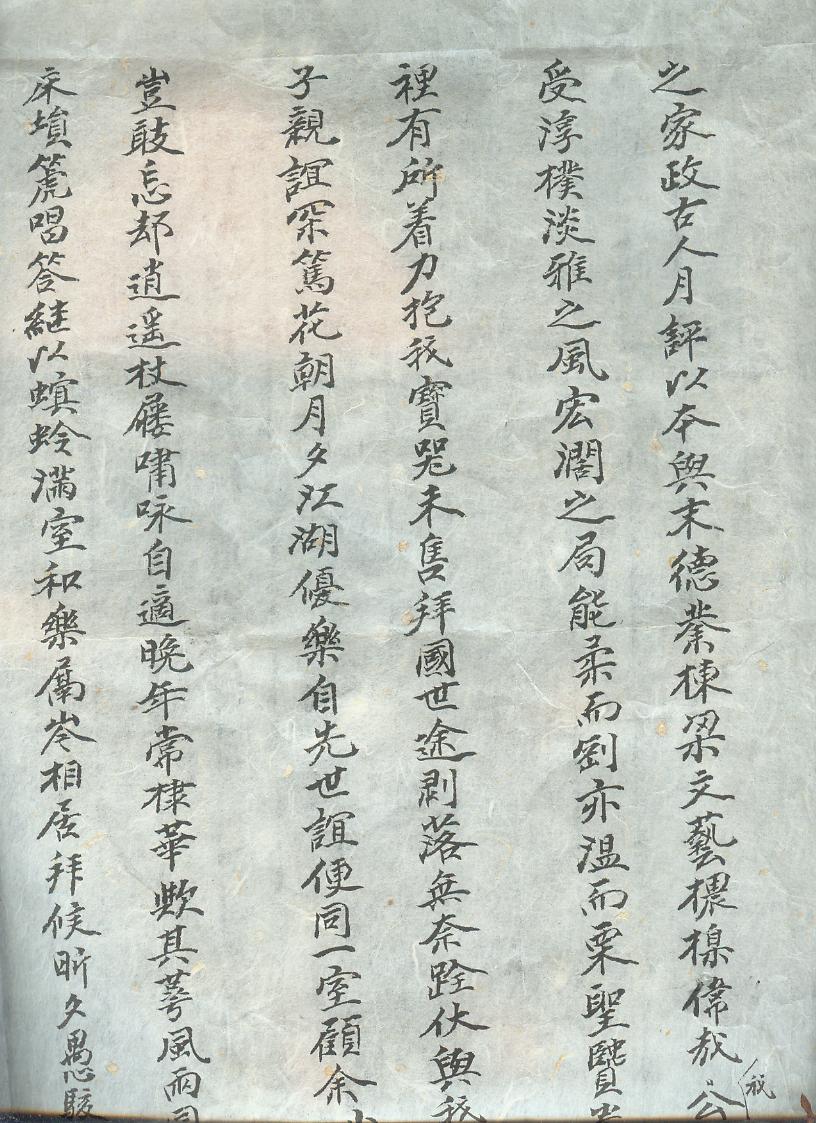 之家政古人月評以本與末德業棟梁文藝椳榥偉哉公
受淳樸淡雅之風宏濶之局能柔而剛亦溫而栗聖賢
裡有所着力抱我寶器未售拜國世途剥落無奈跧伏與我
子親誼深篤花朝月夕江湖優樂自先世誼便同一室顧余
豈敢忘却逍遥杖屨嘯咏自適晚年常棣華歟其萼風雨同
床塤篪唱答継以螟蛉滿室和樂屬岑相居拜候昕夕愚騃
哉